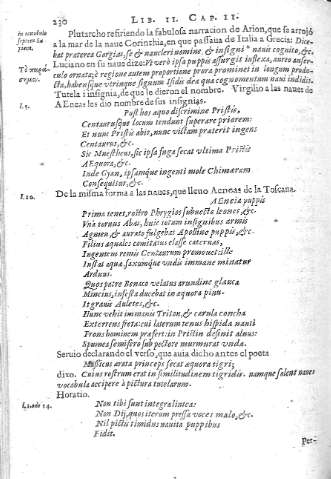 230 LIB. II. CAP. II.
Plutarcho refiriendo la fabulosa narracion de Arion, que se arrojó
a la mar de la naue Corinthia, en que passaua de Italia a Grecia: Dice-
bat præterea Gorgias, se & naucleri nomine, & insigni naui cognito, &c.
Luciano en su naue dize: Vt verò ipsa puppis assurgit inflexa, aureo anser-
culo ornata; è regione autem proportione prora prominet in longum produ-
cta, habens vtrinque signum Isidis dea qua cognomentum naui indidit.
Tutela i insignia, de que le dieron el nombre. Virgilio a las naues de
Æneas les dio nombre de sus insignias.
Post hos æquo discrimine Pristis,
Centaurusque locum tendunt superare priorem:
Et nunc Pristis abit, nunc victam præterit ingens
Centaurus, &c.
Sic Mnestheus, sic ipsa fuga secat vltima Pristis
Æquora, &c.
Inde Gyan, ipsamque ingenti mole Chimæram
Consequitur, &c.
De la misma forma a las naues, que lleuo Aeneas de la Toscana.
Aeneia puppis
Prima tenet, rostro Phrygios subiuncta leones, &c.
Vnà toruus Abas, huic totum insignibus armis
Agmen, & aurato fulgebat Apolline puppis, &c.
Filius æquales comitatus classe cateruas,
Ingentem remis Centaurum promouet: ille
Instat aqua, saxumque vndis immane minatur
Arduus.
Quos patre Benaco velatus arundine glauca
Mincius, infesta ducebat in æquora pinu.
It grauis Auletes, &c.
Hunc vehit immanis Triton, & cærula concha
Exterrens freta: cui laterum tenus hispida nanti
Frons hominem præfert: in Pristin desinit aluus:
Spumea semifero sub pectore murmurat vnda.
Seruio declarando el verso, que auia dicho antes el poeta
Massicus ærata princeps secat æquora tigri;
dixo. Cuius rostrum erat in similitudinem tigridis. namque solent naues
vocabula accipere à pictura tutelarum.
Horatio.
Non tibi sunt integra lintea:
Non Dij, quos iterum pressa voces malo, &c.
Nil pictis timidus nauita puppibus
Fidit.
Per-